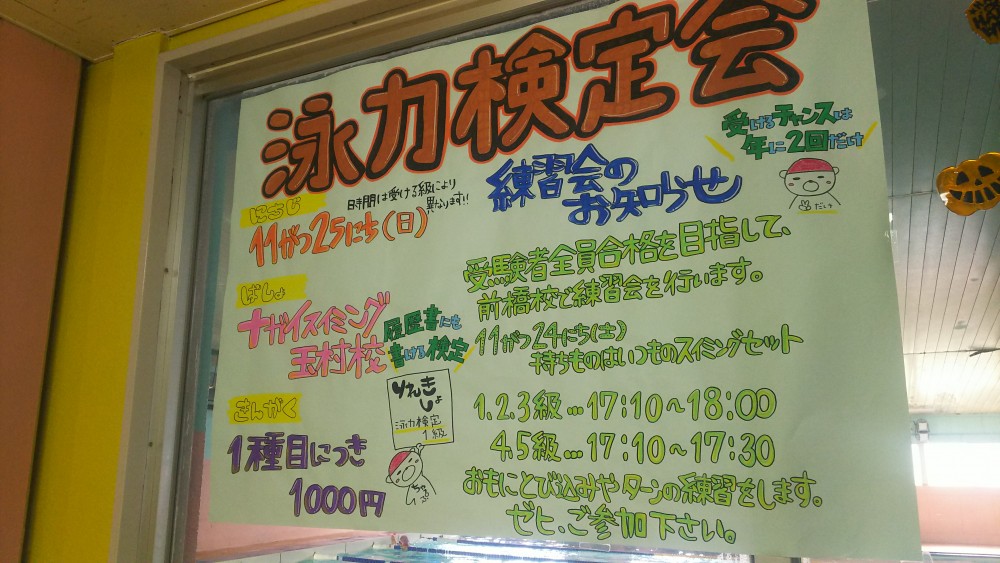 泳力検定会
受けるチャンスは
年に2回だけ
にちじ
時間は受ける級により
異なります!!
11がつ25にち(日)
ばしょ
ナガイスイミング
玉村校
履歴書にも
書ける検定
きんがく
1種目につき
1000円
りれきしょ
泳力検定
1級
練習会の
お知らせ
受験者全員合格を目指して、
前橋校で練習会を行います。
11がつ24にち(土)
持ちものはいつものスイミングセット
1.2.3級…17:10～18:00
4.5級…17:10～17:30
おもにとび込みやターンの練習をします。
ゼヒ、ご参加下さい。